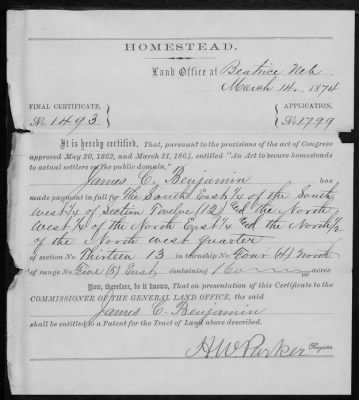 HOMESTEAD.
Land Office at Beatrice Neb
March 14, 1874
FINAL CERTIFICATE, APPLICATION,
No. 1493 No. 1799
It is hereby certified, That, pursuant to the provisions of the act of Congress
approved May 20, 1862, and March 21, 1864, entitled "An Act to secure homesteads
to actual settlers on the public domain,"
James C. Benjamin has
made payment in full for The South East 1/4 of the South
west 1/4 of Section Twelve (12) & the North
West 1/4 of the North East 1/4 & the North 1/2
of the North west quarter
of section No. Thirteen 13 in township No. Four (4) North
of range No. Five (5) East, containing 160 acres
Now, therefore, be it known, That on presentation of this Certificate to the
COMMISSIONER OF THE GENERAL LAND OFFICE, the said
James C. Benjamin
shall be entitled to a Patent for the Tract of Land above described.
H W Parker Register.